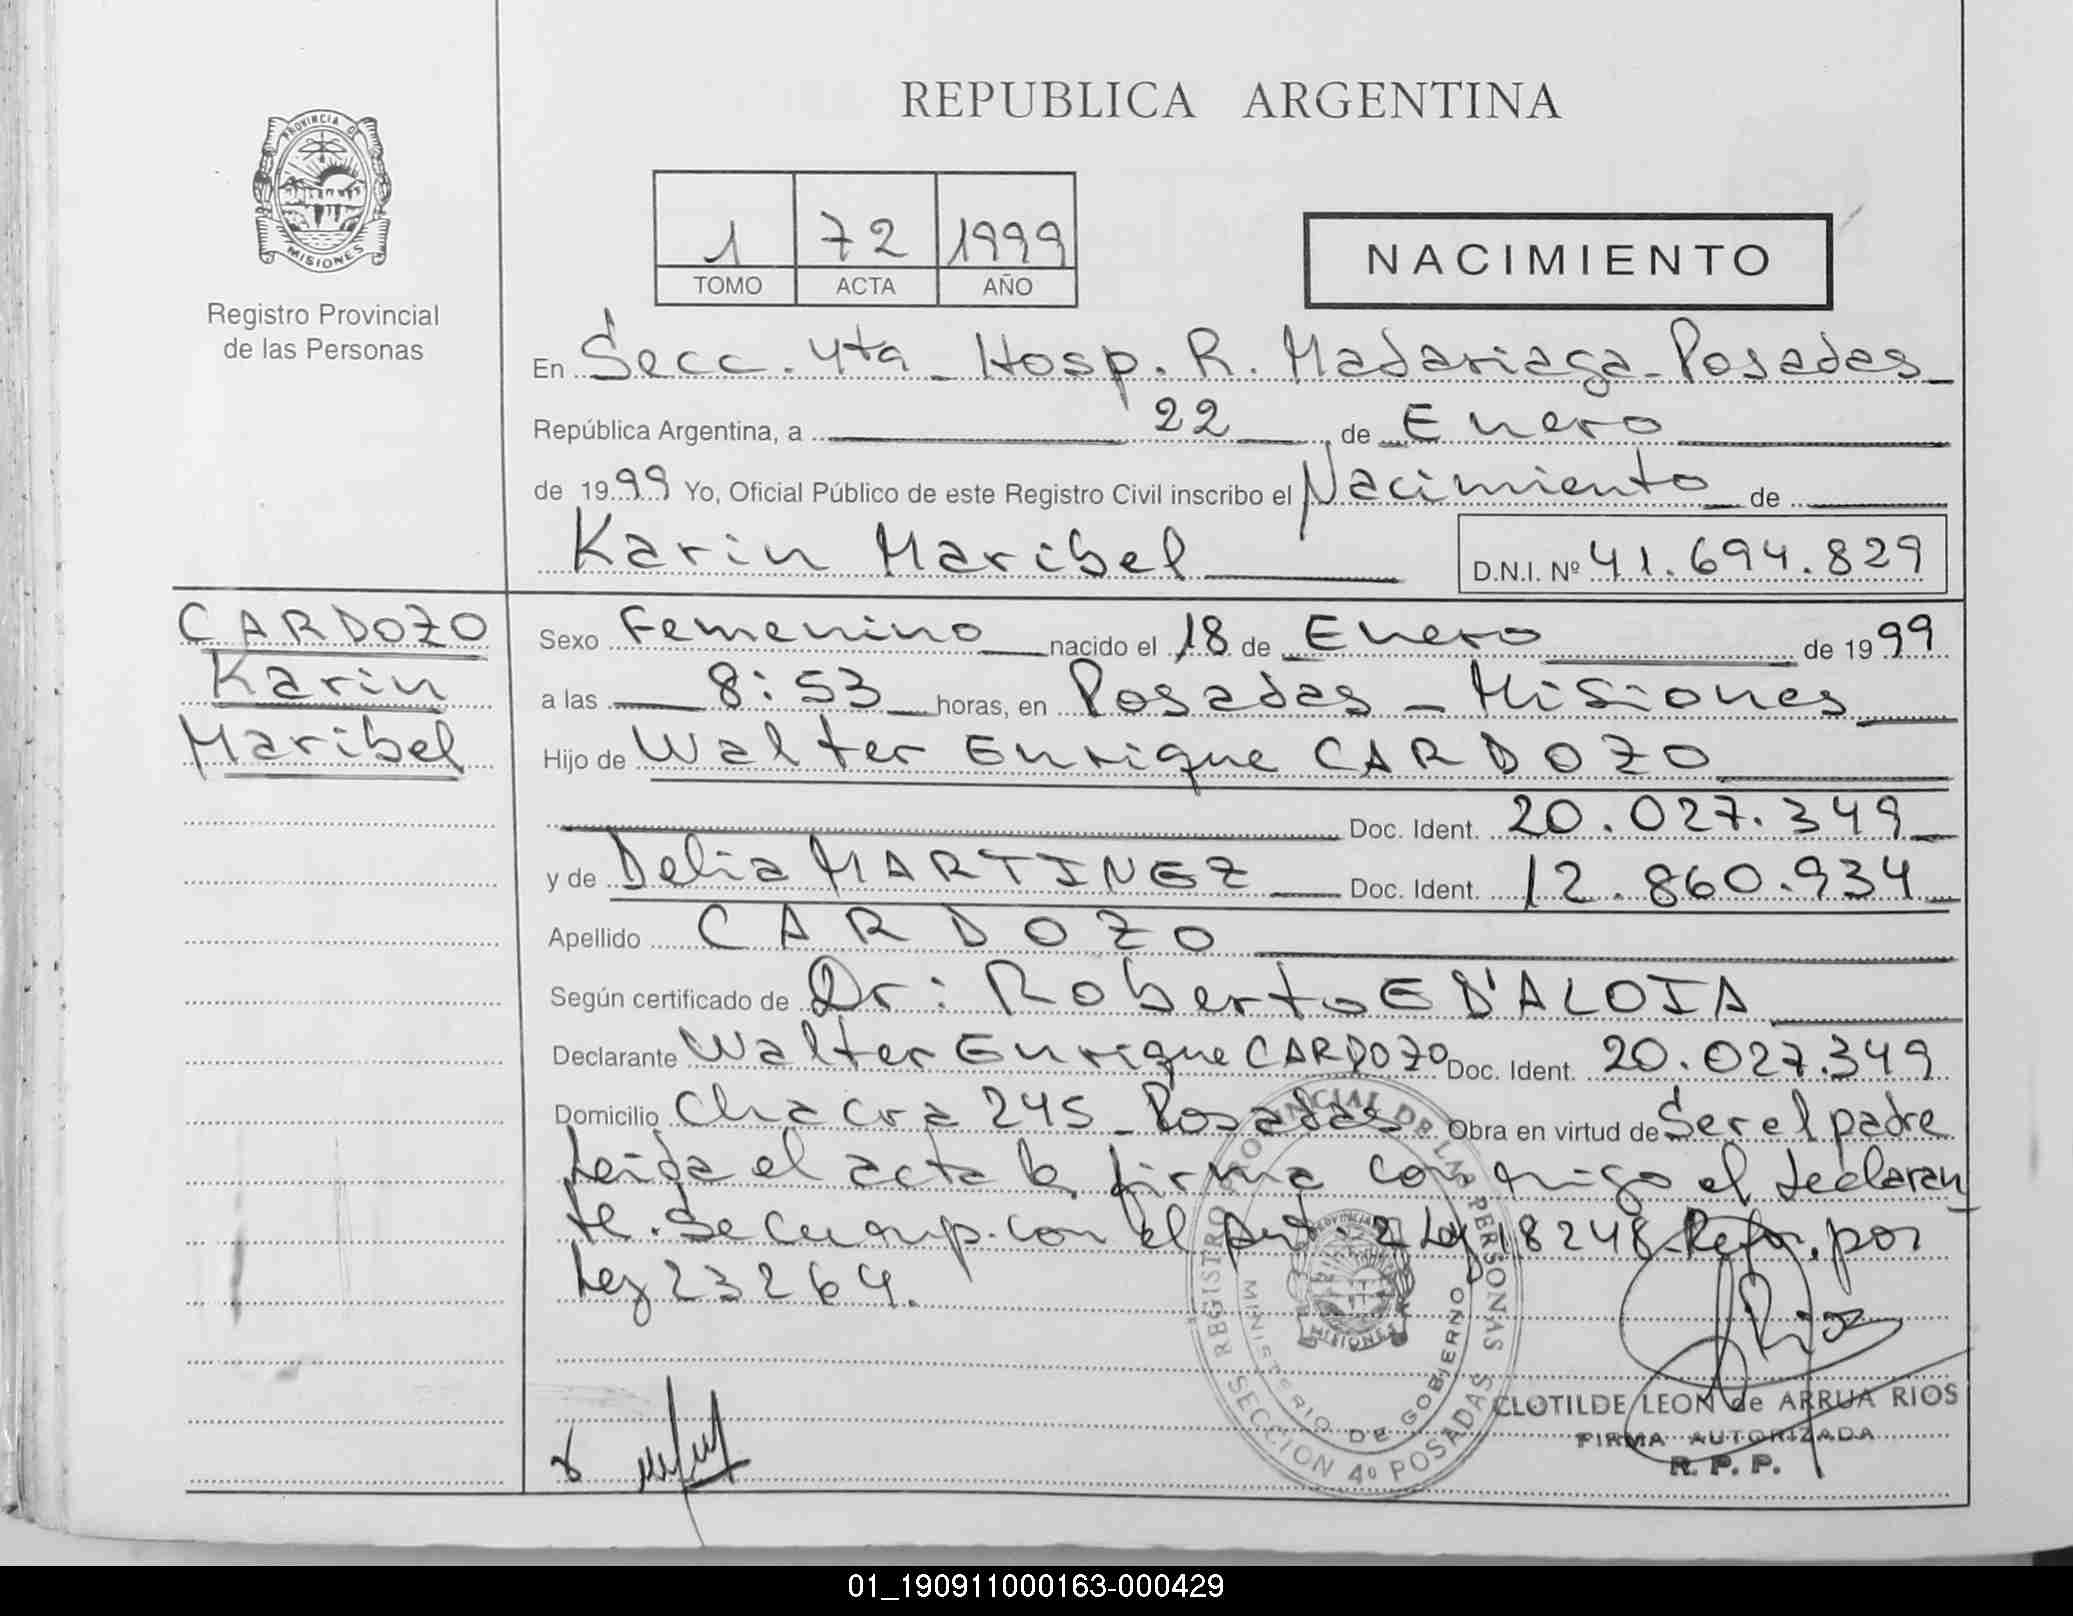 REPUBLICA ARGENTINA
PROVINCIA DE
MISIONES
Registro Provincial
de las Personas
1 72 1999
TOMO ACTA AÑO
NACIMIENTO
En Secc. 4ta _ Hosp. R. Madariaga - Posadas
República Argentina, a 22 de Enero
de 1999 Yo, Oficial Público de este Registro Civil inscribo el Nacimiento de
Karin Maribel D.N.I. Nº 41.694.829
CARDOZO
Karin
Maribel
Sexo Femenino nacido el 18 de Enero de 1999
a las 8:53 horas, en Posadas - Misiones
Hijo de Walter Enrique CARDOZO
Doc. Ident. 20.027.349
y de Delia MARTINEZ Doc. Ident. 12.860.934
Apellido CARDOZO
Según certificado de Dr: Roberto E D'ALOIA
Declarante Walter Enrique CARDOZO Doc. Ident. 20.027.349
Domicilio Chacra 245 - Posadas Obra en virtud de Ser el padre
Leida el acta la firma conmigo el declaran
te. Se cump. con el Art. 2 Ley 18248 - Refor. por
Ley 23264.
REGISTRO PROVINCIAL DE LAS PERSONAS
MINISTERIO DE GOBIERNO
SECCION 4º POSADAS
MISIONES
CLOTILDE LEON de ARRUA RIOS
FIRMA AUTORIZADA
R. P. P.
01_190911000163-000429